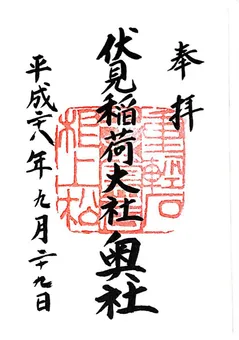 奉拝
伏見稲荷大社奥社
平成二十八年九月二十九日